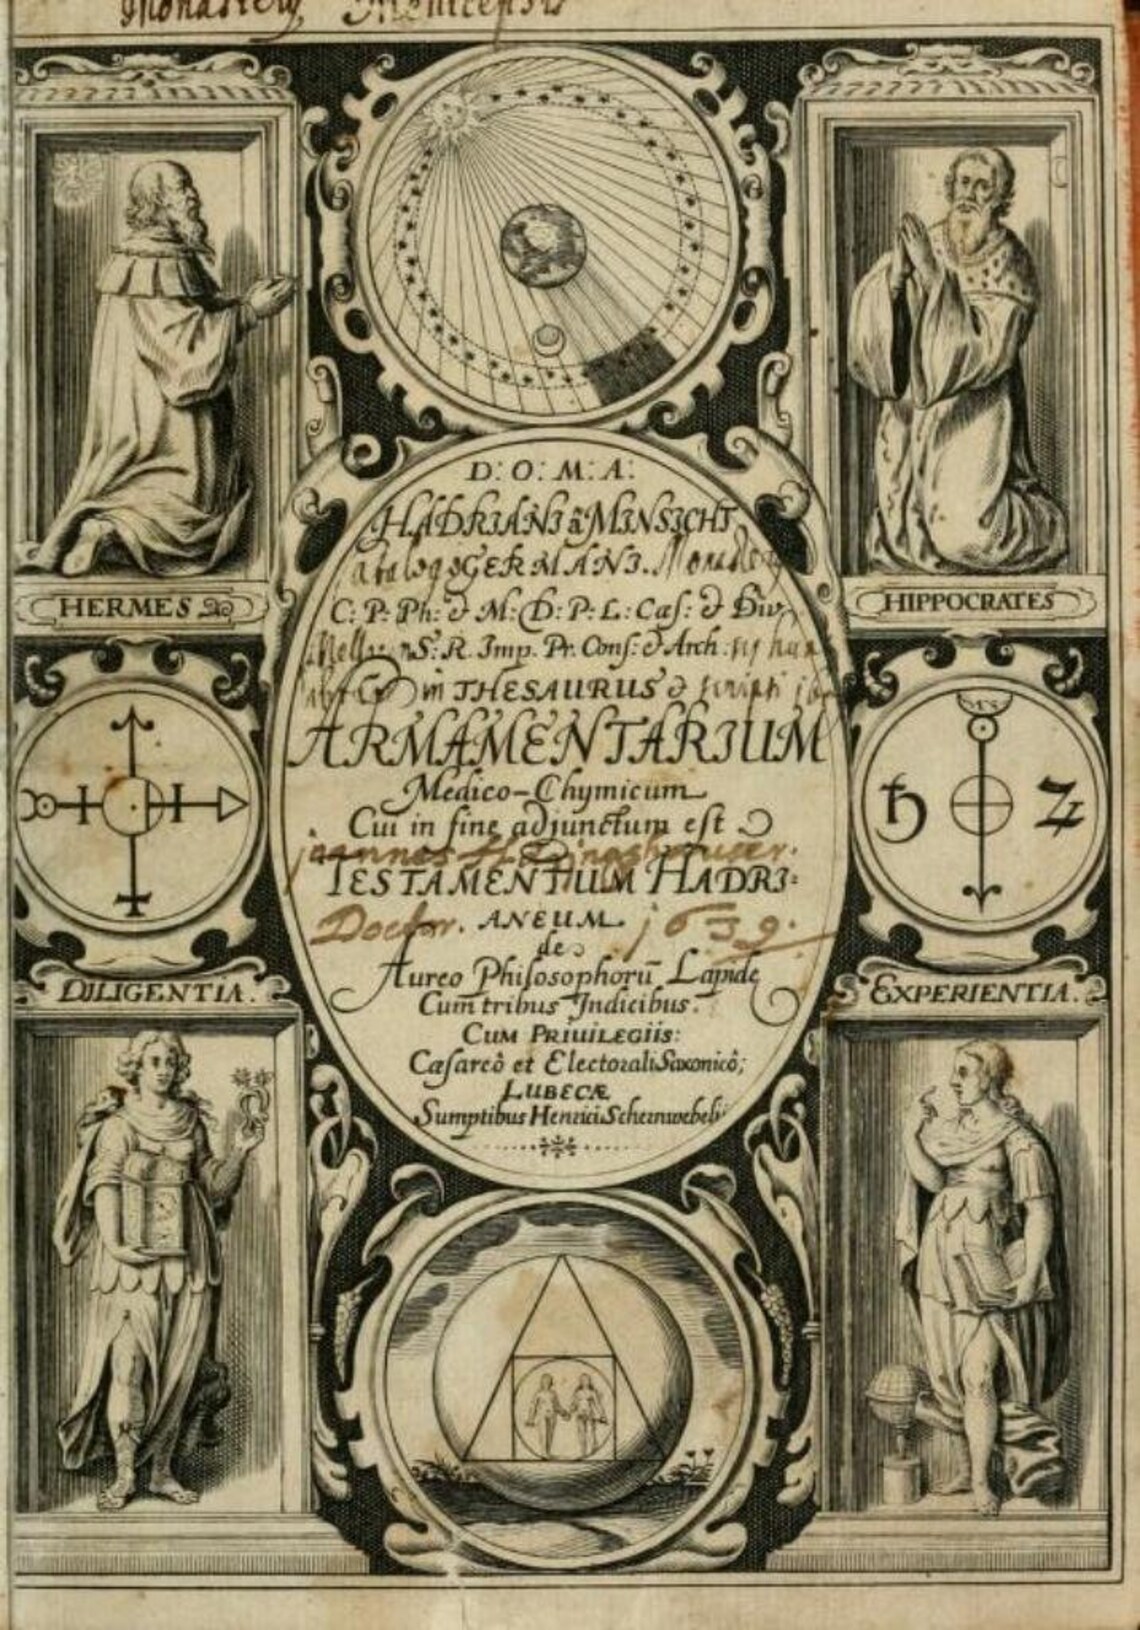 Monasterij
D: O: M: A:
HADRIANI à MINSICHT
GERMANI.
C: P: Ph: & M: D: P: L: Cæs: & Div
S: R. Imp. Pr. Cons: & Arch:
THESAURUS &
ARMAMENTARIUM
Medico-Chymicum
Cui in fine adjunctum est
TESTAMENTUM HADRI=
Doctor. ANEUM 1639.
de
Aureo Philosophorū Lapide
Cum tribus Indicibus.
CUM PRIUILEGIIS:
Cæsareô et Electorali Saxonicô;
LUBECÆ
Sumptibus Henrici Schernwebelij
HERMES
HIPPOCRATES
♄
DILIGENTIA.
EXPERIENTIA.